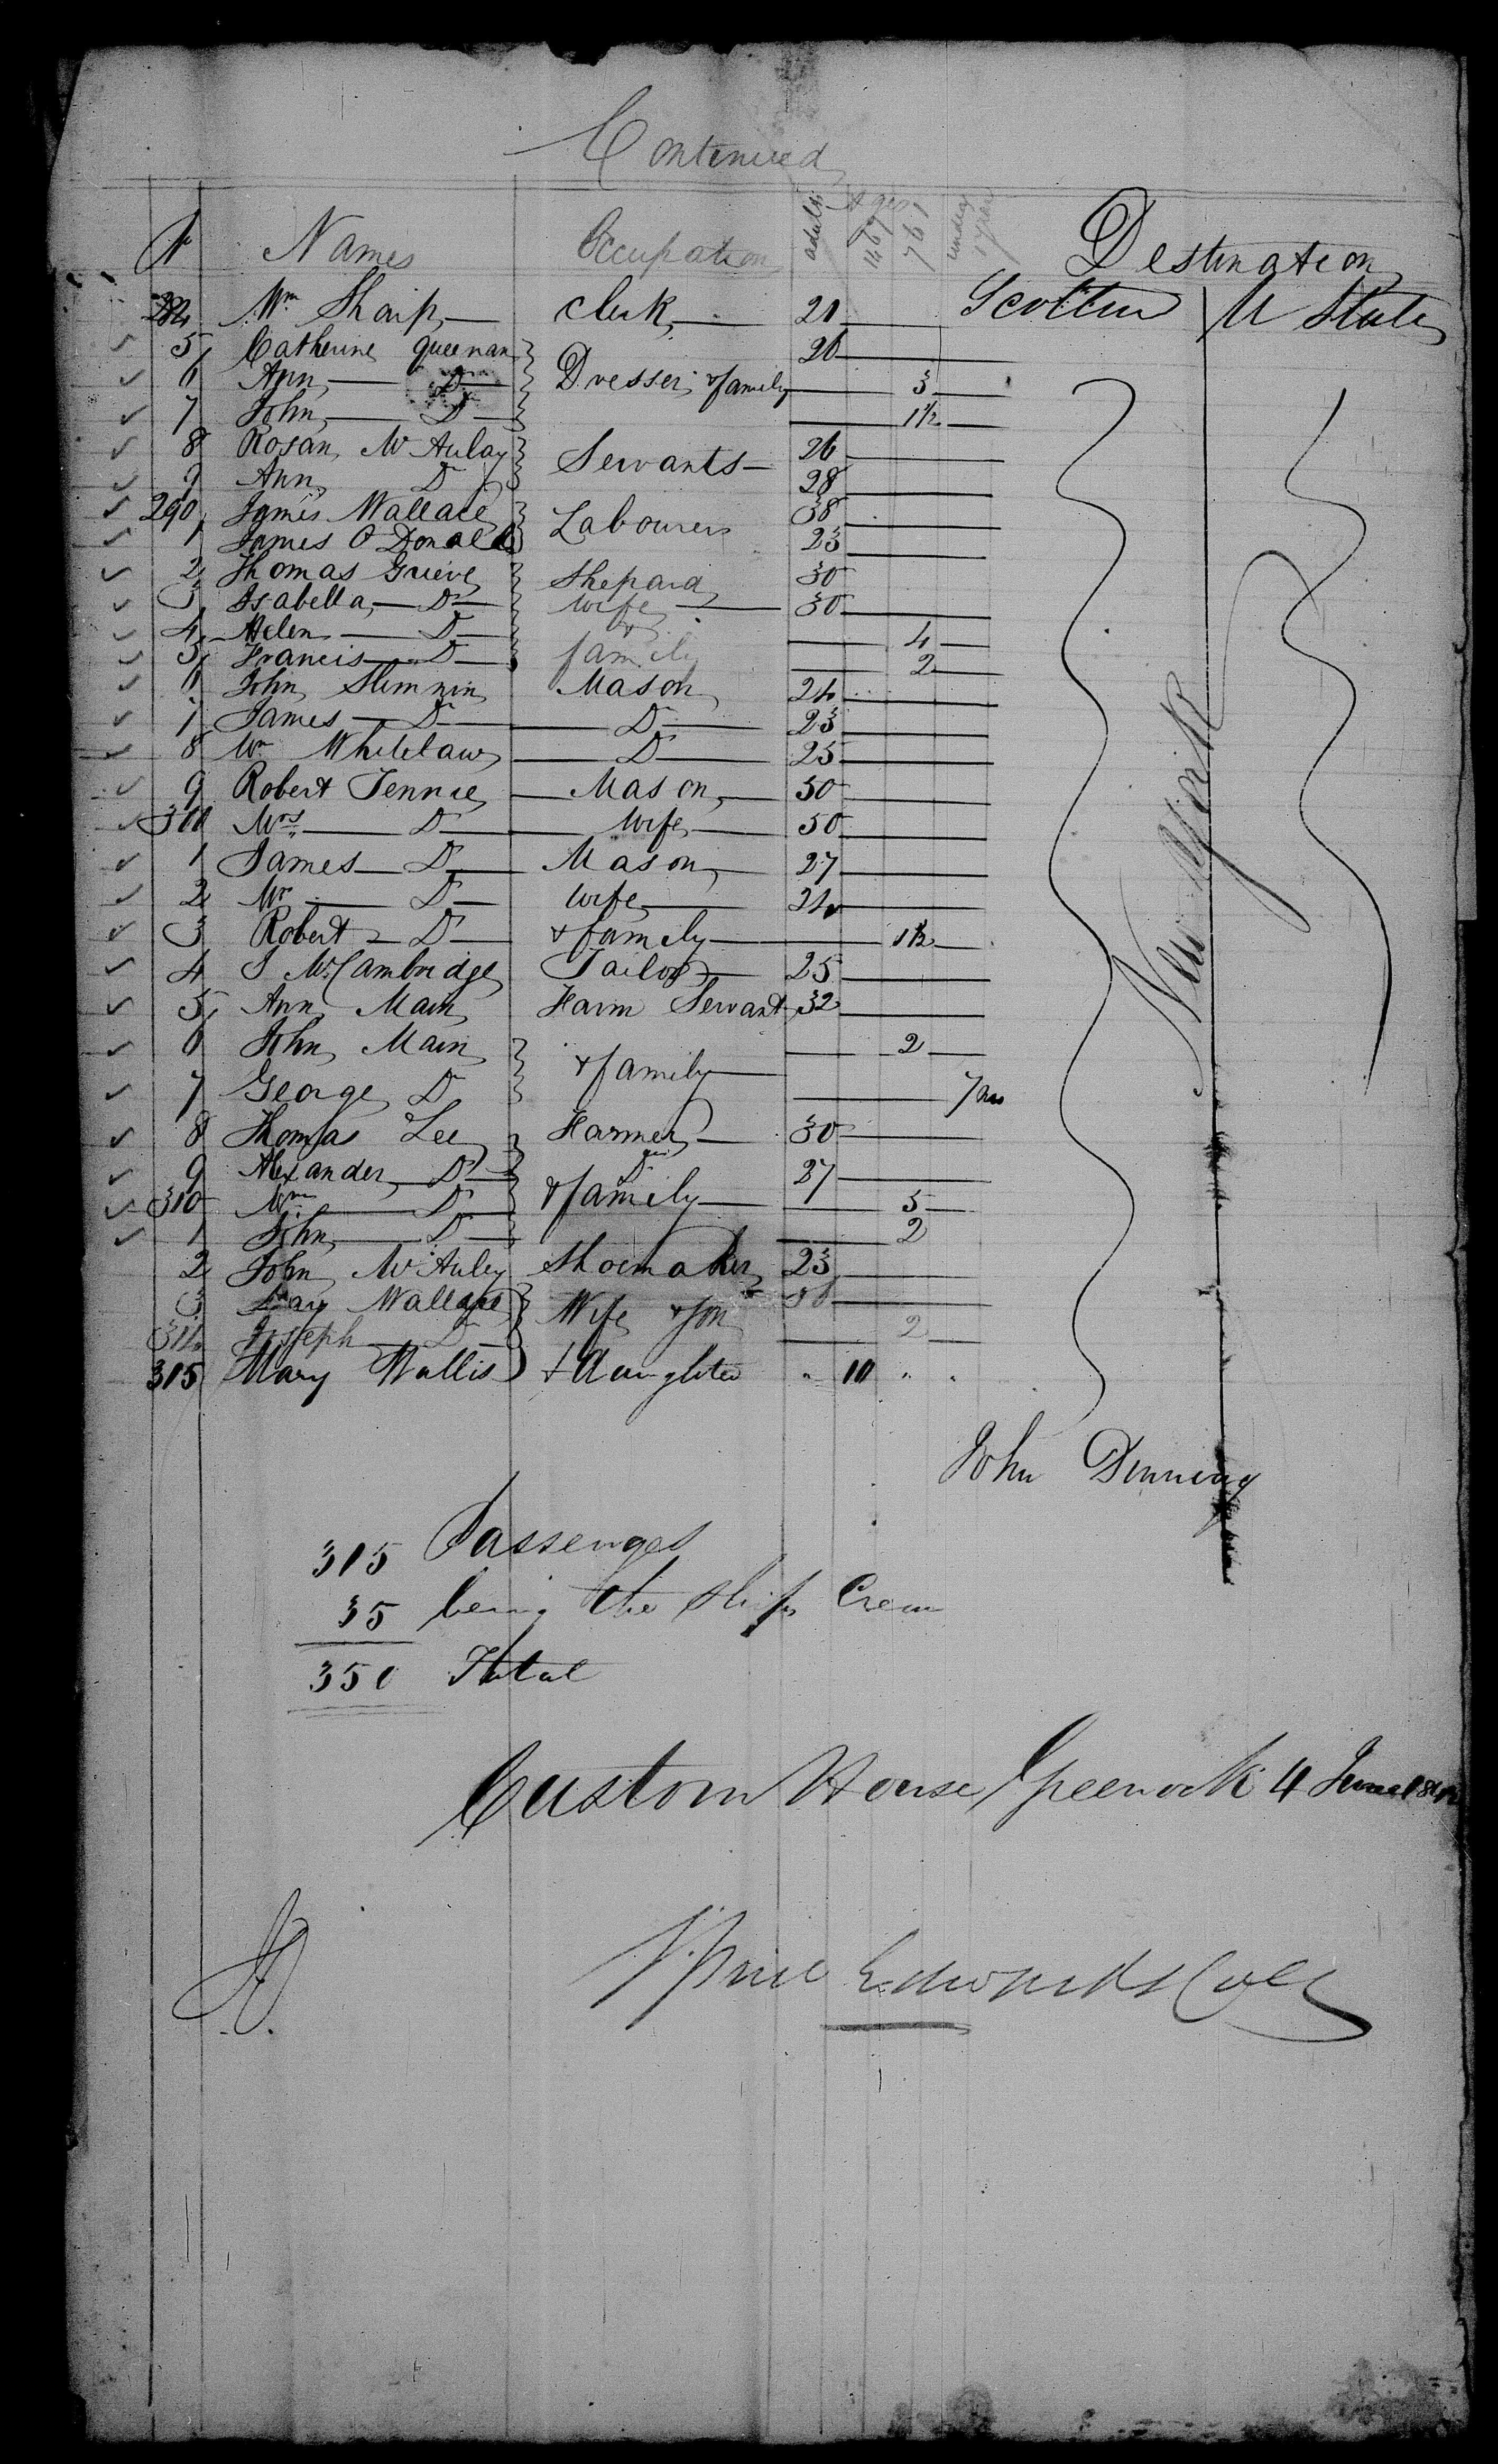 Continued
N Names Occupation adults Ages 14 to 7 7 to 1 under 1 year Destination
284 Wm Sharp clerk 21 U State
5 Catherine Queenan 26
6 Ann D Dresser & family 3
7 John D 1½
8 Rosan McAulay Servants 26
9 Ann D 28
290 James Wallace Labourers 38
1 James O Donald 23
2 Thomas Grieve Shepard 30
3 Isabella D wife 30
4 Helen D & 4
5 Francis D family 2
6 John Slimmin Mason 24
7 James D D 23
8 Wm Whitelaw D 25
9 Robert Jennie Mason 50
300 Mrs D Wife 50
1 James D Mason 27
2 Mrs D wife 24
3 Robert D & family 1½
4 J McCambridge Tailor 25
5 Ann Main Farm Servant 32
6 John Main & family 2
7 George D 7 ms
8 Thomas Lee Farmer 30
9 Alexander D 27
310 Wm D & family 5
1 John D 2
2 John McAuley Shoemaker 23
3 Mary Wallace Wife & son 36
314 Joseph D 2
315 Mary Wallis + daughter " 10 " "
New York
John Dinning
315 Passenges
35 being the ships Crew
350 Total
Custom House Greenock 4 June
Price Edwards Coll